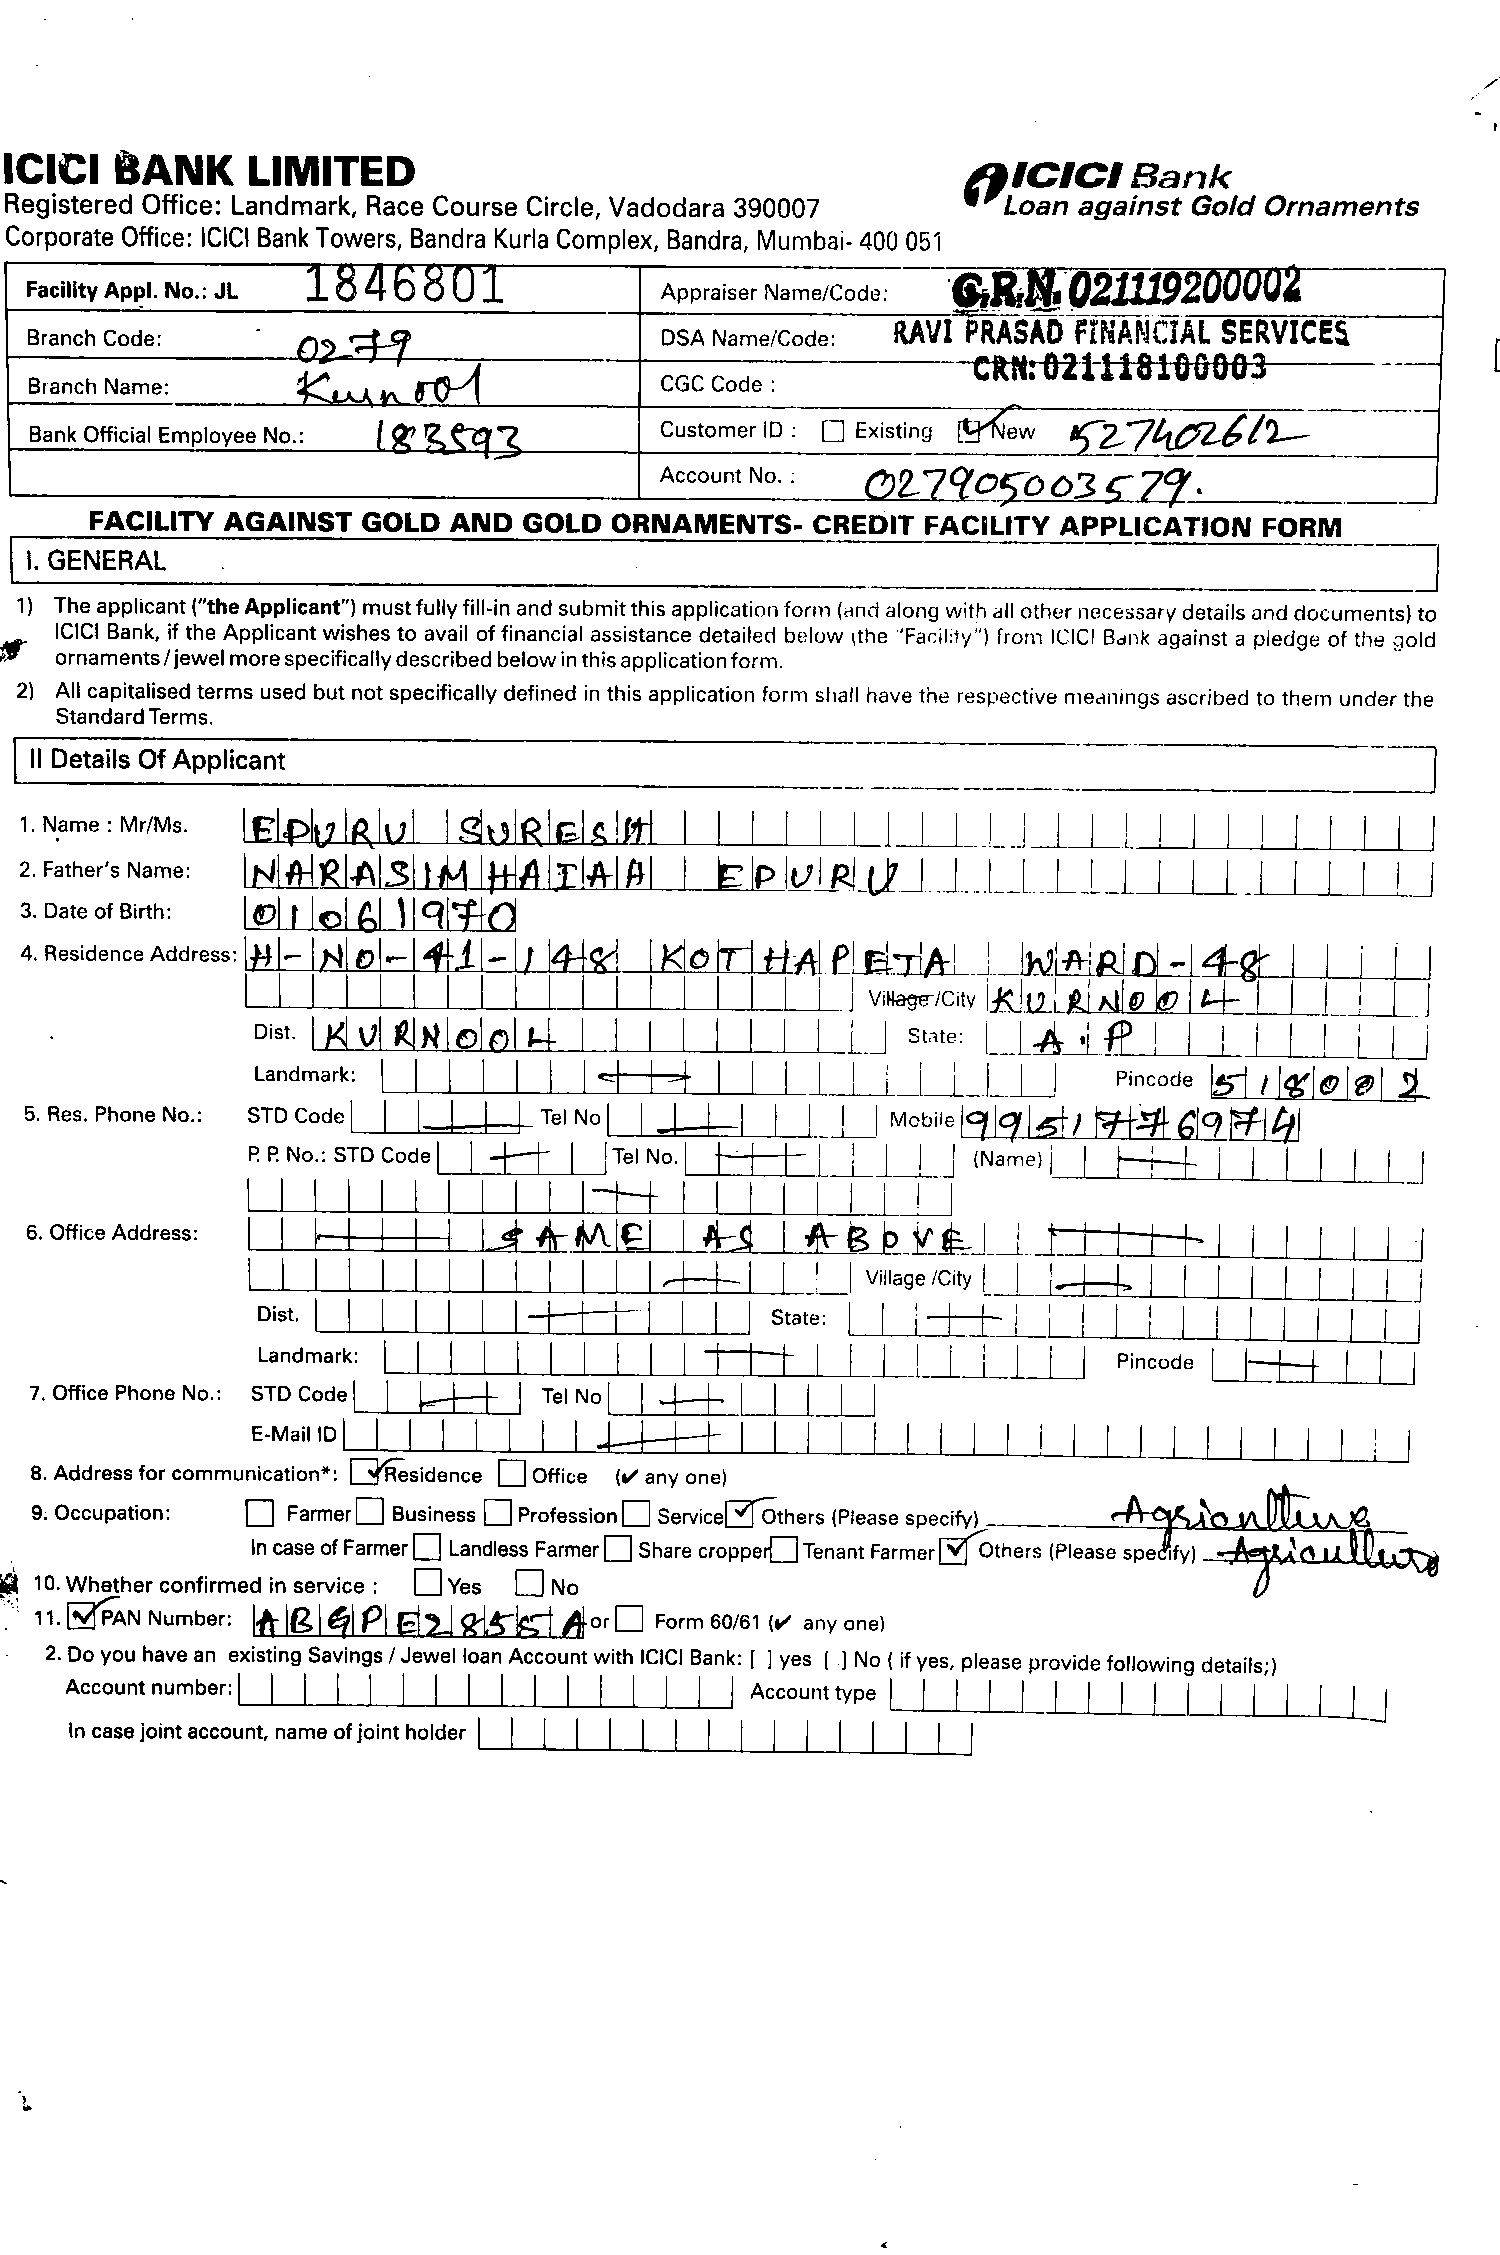 ICICI BANK LIMITED
Registered Office: Landmark, Race Course Circle, Vadodara 390007
Corporate Office: ICICI Bank Towers, Bandra Kurla Complex, Bandra, Mumbai- 400 051
ICICI Bank
Loan against Gold Ornaments
Facility Appl. No.: JL 1846801
Appraiser Name/Code: C.R.N. 021119200002
Branch Code: 0279
DSA Name/Code: RAVI PRASAD FINANCIAL SERVICES
CRN: 021118100003
Branch Name: Kurnool
CGC Code :
Bank Official Employee No.: 183593
Customer ID : Existing New 527402612
Account No. : 027905003579.
FACILITY AGAINST GOLD AND GOLD ORNAMENTS- CREDIT FACILITY APPLICATION FORM
I. GENERAL
1) The applicant ("the Applicant") must fully fill-in and submit this application form (and along with all other necessary details and documents) to
ICICI Bank, if the Applicant wishes to avail of financial assistance detailed below (the "Facility") from ICICI Bank against a pledge of the gold
ornaments / jewel more specifically described below in this application form.
2) All capitalised terms used but not specifically defined in this application form shall have the respective meanings ascribed to them under the
Standard Terms.
II Details Of Applicant
1. Name : Mr/Ms. EPURU SURESH
2. Father's Name: NARASIMHAIAH EPURU
3. Date of Birth: 01061970
4. Residence Address: H-NO-41-148 KOTHAPETA WARD-48
Village /City KURNOOL
Dist. KURNOOL State: A.P
Landmark: Pincode 518002
5. Res. Phone No.: STD Code Tel No Mobile 9951776974
P. P. No.: STD Code Tel No. (Name)
6. Office Address: SAME AS ABOVE
Village /City
Dist. State:
Landmark: Pincode
7. Office Phone No.: STD Code Tel No
E-Mail ID
8. Address for communication*: ✓ Residence Office (✔ any one)
9. Occupation: Farmer Business Profession Service ✓ Others (Please specify) Agriculture
In case of Farmer Landless Farmer Share cropper Tenant Farmer ✓ Others (Please specify) Agriculture
10. Whether confirmed in service : Yes No
11. ✓ PAN Number: ABGPE2855A or Form 60/61 (✔ any one)
2. Do you have an existing Savings / Jewel loan Account with ICICI Bank: [ ] yes [ ] No ( if yes, please provide following details;)
Account number: Account type
In case joint account, name of joint holder